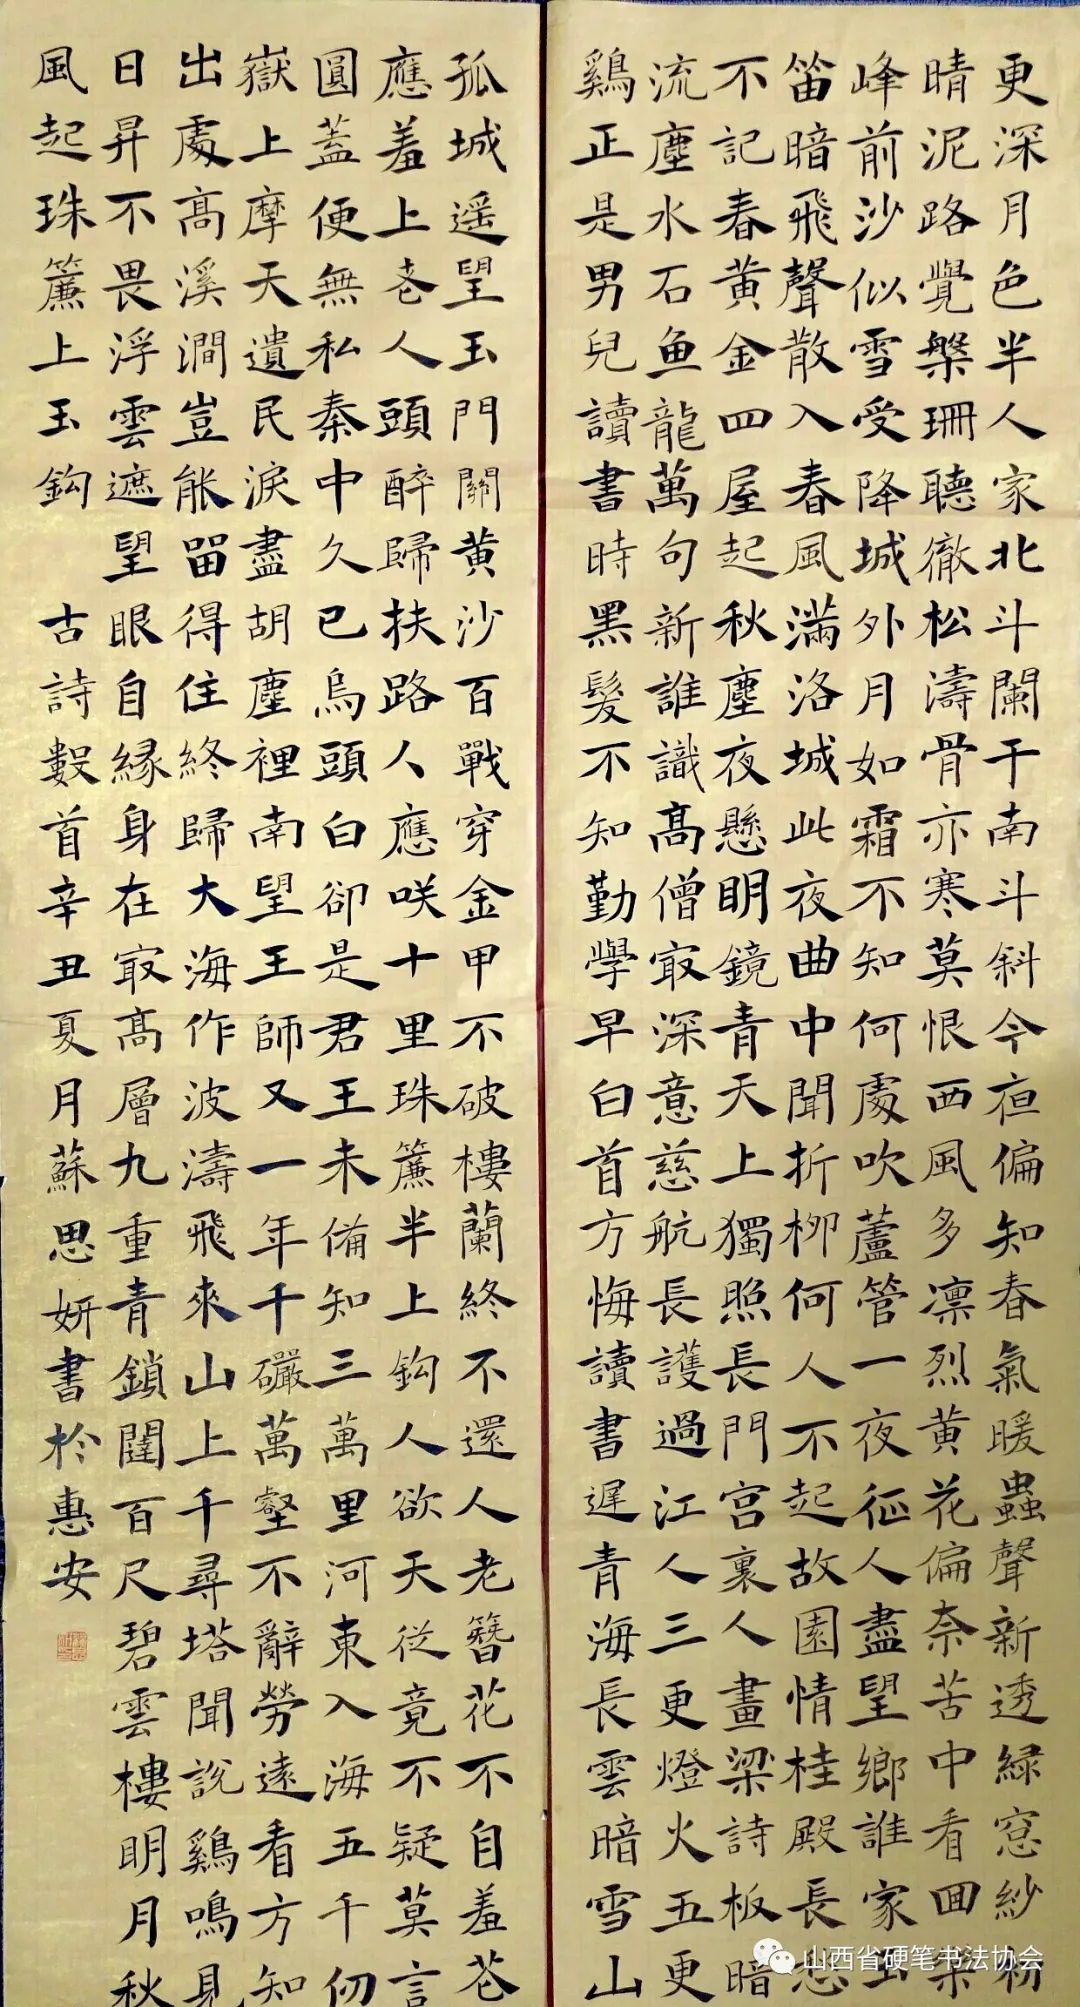 更深月色半人家北斗闌干南斗斜今夜偏知春氣暖蟲聲新透綠窓紗初
晴泥路覺槃珊聽徹松濤骨亦寒莫恨西風多凛烈黄花偏奈苦中看回樂
峰前沙似雪受降城外月如霜不知何處吹蘆管一夜征人盡望鄉誰家玉
笛暗飛聲散入春風滿洛城此夜曲中聞折柳何人不起故園情桂殿長愁
不記春黄金四屋起秋塵夜懸明鏡青天上獨照長門宫裏人畫梁詩板暗
流塵水石魚龍萬句新誰識高僧最深意慈航長護過江人三更燈火五更
鷄正是男兒讀書時黑髮不知勤學早白首方悔讀書遲青海長雲暗雪山
孤城遥望玉門關黄沙百戰穿金甲不破樓蘭終不還人老簪花不自羞花
應羞上老人頭醉歸扶路人應咲十里珠簾半上鈎人欲天從竟不疑莫言
圓蓋便無私秦中久已烏頭白卻是君王未備知三萬里河東入海五千仞
嶽上摩天遺民淚盡胡塵裡南望王師又一年千巖萬壑不辭勞遠看方知
出處高溪澗豈能留得住終歸大海作波濤飛來山上千尋塔聞說鷄鳴見
日昇不畏浮雲遮望眼自緣身在最高層九重青鎖闥百尺碧雲樓明月秋
風起珠簾上玉鈎 古詩數首辛丑夏月蘇思妍書於惠安
山西省硬笔书法协会